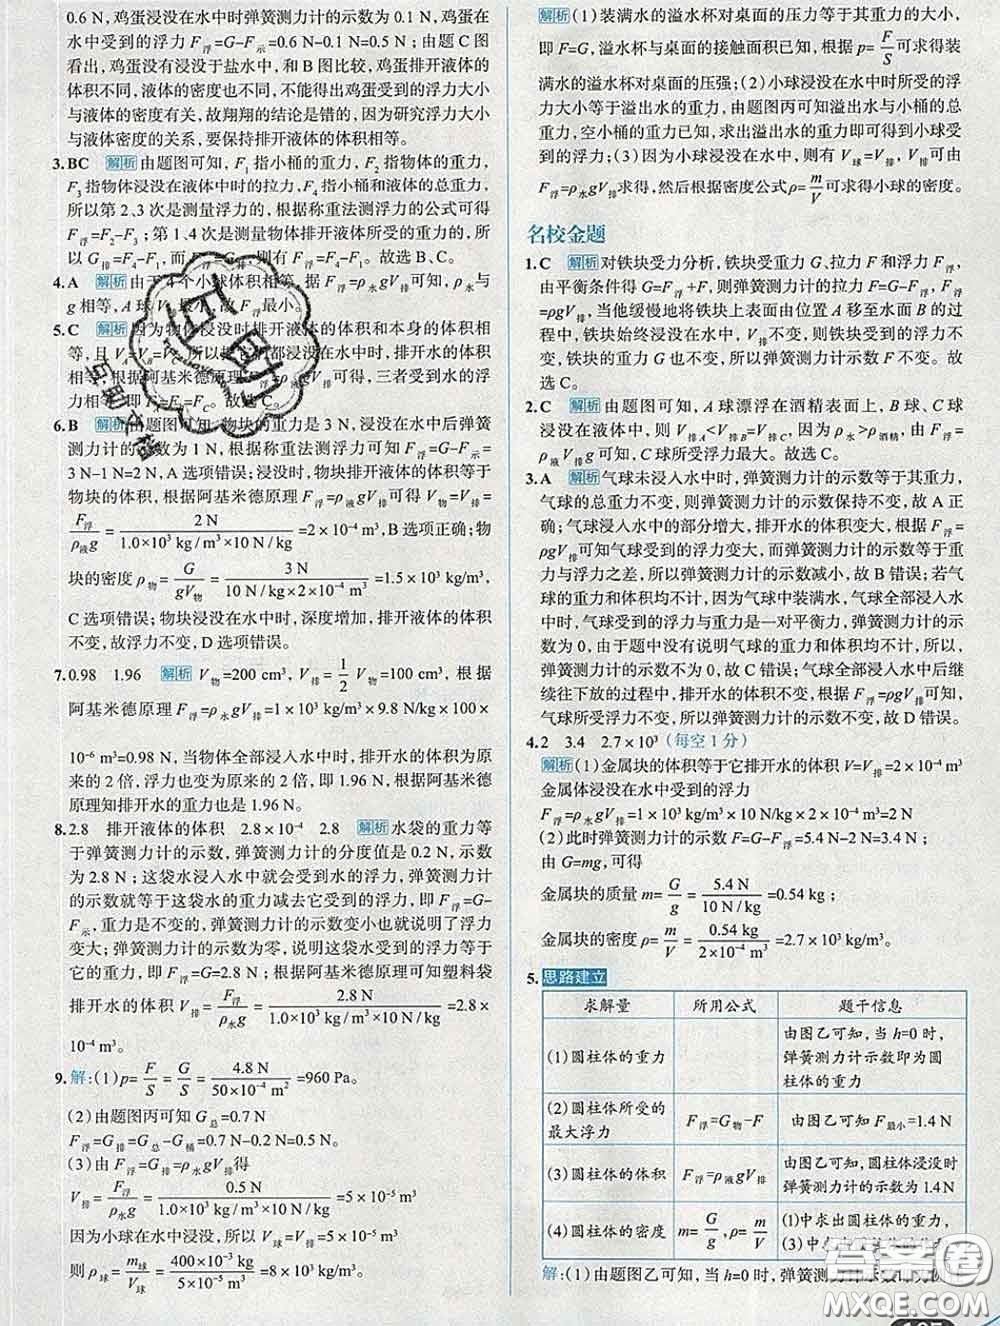 0.6 N,鸡蛋浸没在水中时弹簧测力计的示数为 0.1 N,鸡蛋在
水中受到的浮力 F浮=G-F示=0.6 N-0.1 N=0.5 N;由题 C 图
看出,鸡蛋没有浸没于盐水中,和 B 图比较,鸡蛋排开液体的
体积不同,液体的密度也不同,不能得出鸡蛋受到的浮力大小
与液体的密度有关,故翔翔的结论是错的,因为研究浮力大小
与液体密度的关系,要保持排开液体的体积相等。
3.BC 解析 由题图可知,F₁指小桶的重力,F₂指物体的重力,
F₃指物体浸没在液体中时的拉力,F₄指小桶和液体的总重力,
所以第 2、3 次是测量浮力的,根据称重法测浮力的公式可得
F浮=F₂-F₃;第 1、4 次是测量物体排开液体所受的重力的,
所以 G排=F₄-F₁,而 F浮=G排,则有 F浮=F₄-F₁。故选 B、C。
4.A 解析 由于 4 个小球体积相等,据 F浮=ρ水gV排可知,ρ水与
g 相等,A 球 V排最小,故 F浮最小。
5.C 解析 因为物体浸没时排开液体的体积和本身的体积相
等,且 所以将它们都浸没在水中时,排开水的体积
相等,根据阿基米德原理 可得,三者受到水的浮
力相等,即 F_A=F_B=F_C。故选 C。
6.B 解析 由题图可知,物块的重力是 3 N,浸没在水中后弹簧
测力计的示数为 1 N,根据称重法可知浮力 F浮=G-F示=
3 N-1 N=2 N,A 选项错误;浸没时,物块排开液体的体积等于
物块的体积,根据阿基米德原理 F浮=ρ液gV排可得 V物=V排=
F浮/ρ液g=2 N/(1.0×10³ kg/m³×10 N/kg)=2×10⁻⁴ m³,B 选项正确;物
块的密度 ρ物=G/gV物=3 N/(10 N/kg×2×10⁻⁴ m³)=1.5×10³ kg/m³,
C 选项错误;物块浸没在水中时,深度增加,排开液体的体积
不变,故浮力不变,D 选项错误。
7.0.98 1.96 解析 V物=200 cm³,V排=1/2 V物=100 cm³,根据
阿基米德原理 F浮=ρ水gV排=1×10³ kg/m³×9.8 N/kg×100×
10⁻⁶ m³=0.98 N,当物体全部浸入水中时,排开水的体积为原
来的 2 倍,浮力也变为原来的 2 倍,即 1.96 N,根据阿基米德
原理知排开水的重力也是 1.96 N。
8.2.8 排开液体的体积 2.8×10⁻⁴ 2.8 解析 水袋的重力等
于弹簧测力计的示数,弹簧测力计的分度值是 0.2 N,示数
为 2.8 N;这袋水浸入水中就会受到水的浮力,弹簧测力计
的示数就等于这袋水的重力减去它受到的浮力,即 F浮=G-
F示,重力是不变的,弹簧测力计的示数变小也就说明了浮力
变大;弹簧测力计的示数为零,说明这袋水受到的浮力等于
它的重力,即 F浮=G=2.8 N;根据阿基米德原理可知塑料袋
排开水的体积 V排=F浮/ρ水g=2.8 N/(1.0×10³ kg/m³×10 N/kg)=2.8×
10⁻⁴ m³。
9.解:(1)p=F/S=G/S=4.8 N/(50×10⁻⁴ m²)=960 Pa。
(2)由题图丙可知 G总=0.7 N
F浮=G排=G总-G桶=0.7 N-0.2 N=0.5 N。
(3)由 F浮=G排=ρ水gV排得
V排=F浮/ρ水g=0.5 N/(1.0×10³ kg/m³×10 N/kg)=5×10⁻⁵ m³
因为小球在水中浸没,则 V球=V排=5×10⁻⁵ m³
则 ρ球=m球/V球=400×10⁻³ kg/(5×10⁻⁵ m³)=8×10³ kg/m³。
解析 (1)装满水的溢水杯对桌面的压力等于其重力的大小,
即 F=G,溢水杯与桌面的接触面积已知,根据 p=F/S可求得装
满水的溢水杯对桌面的压强;(2)小球浸没在水中时所受的浮
力大小等于溢出水的重力,由题图丙可知溢出水与小桶的总
重力,空小桶的重力已知,求出溢出水的重力即可得到小球受
到的浮力;(3)因为小球浸没在水中,则有 V球=V排,可由
F浮=ρ水gV排求得,然后根据密度公式 ρ=m/V可求得小球的密度。
名校金题
1.C 解析 对铁块受力分析,铁块受重力 G、拉力 F 和浮力 F浮,
由平衡条件得 G=F浮+F,则弹簧测力计的拉力 F=G-F浮,F浮
=ρgV排,当他缓慢地将铁块上表面由位置 A 移至水面 B 的过
程中,铁块始终浸没在水中,V排不变,则铁块受到的浮力不
变,铁块的重力 G 也不变,所以弹簧测力计示数 F 不变。故
选 C。
2.C 解析 由题图可知,A 球漂浮在酒精表面上,B 球、C 球
浸没在液体中,则 V排A<V排B=V排C,因为 ρ水>ρ酒精,由 F浮=
ρgV排可知,C 球所受浮力最大。故选 C。
3.A 解析 气球未浸入水中时,弹簧测力计的示数等于其重力,
气球的总重力不变,则弹簧测力计的示数保持不变,故 A 正
确;气球浸入水中的部分增大,排开水的体积变大,根据 F浮=
ρgV排可知气球受到的浮力变大,而弹簧测力计的示数等于重
力与浮力之差,所以弹簧测力计的示数减小,故 B 错误;若气
球的重力和体积均不计,因为气球中装满水,气球全部浸没入
水中时,气球受到的浮力与重力是一对平衡力,弹簧测力计的示
数为 0,由于题中没有说明气球的重力和体积均不计,所以,
弹簧测力计的示数不为 0,故 C 错误;气球全部浸入水中后继
续往下放的过程中,排开水的体积不变,根据 F浮=ρgV排可知,
气球所受浮力不变,所以弹簧测力计的示数不变,故 D 错误。
4.2 3.4 2.7×10³(每空 1 分)
解析 (1)金属块的体积等于它排开水的体积 V=V排=2×10⁻⁴ m³
金属体浸没在水中受到的浮力
F浮=ρgV排=1×10³ kg/m³×10 N/kg×2×10⁻⁴ m³=2 N
(2)此时弹簧测力计的示数 F=G-F浮=5.4 N-2 N=3.4 N;
由 G=mg,可得
金属块的质量 m=G/g=5.4 N/(10 N/kg)=0.54 kg;
金属块的密度 ρ=m/V=0.54 kg/(2×10⁻⁴ m³)=2.7×10³ kg/m³。
5.思路建立
求解量 所用公式 题干信息
(1)圆柱体的重力 由图乙可知,当 h=0 时,弹簧测力计示数即为圆柱体的重力
(2)圆柱体所受的最大浮力 F浮=G物-F 由图乙可知 F最小=1.4 N
(3)圆柱体的体积 F浮=ρ液gV排 由图乙可知,圆柱体浸没时弹簧测力计的示数为 1.4 N
(4)圆柱体的密度 m=G/g,ρ=m/V (1)中求出圆柱体的重力,(3)中
解:(1)由题图乙可知,当 h=0 时,弹簧测力计示数
答案圈
MXQE.COM